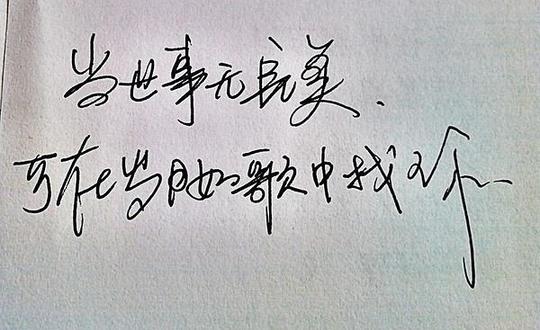 当世事无完美、
可在岁月如歌中找你